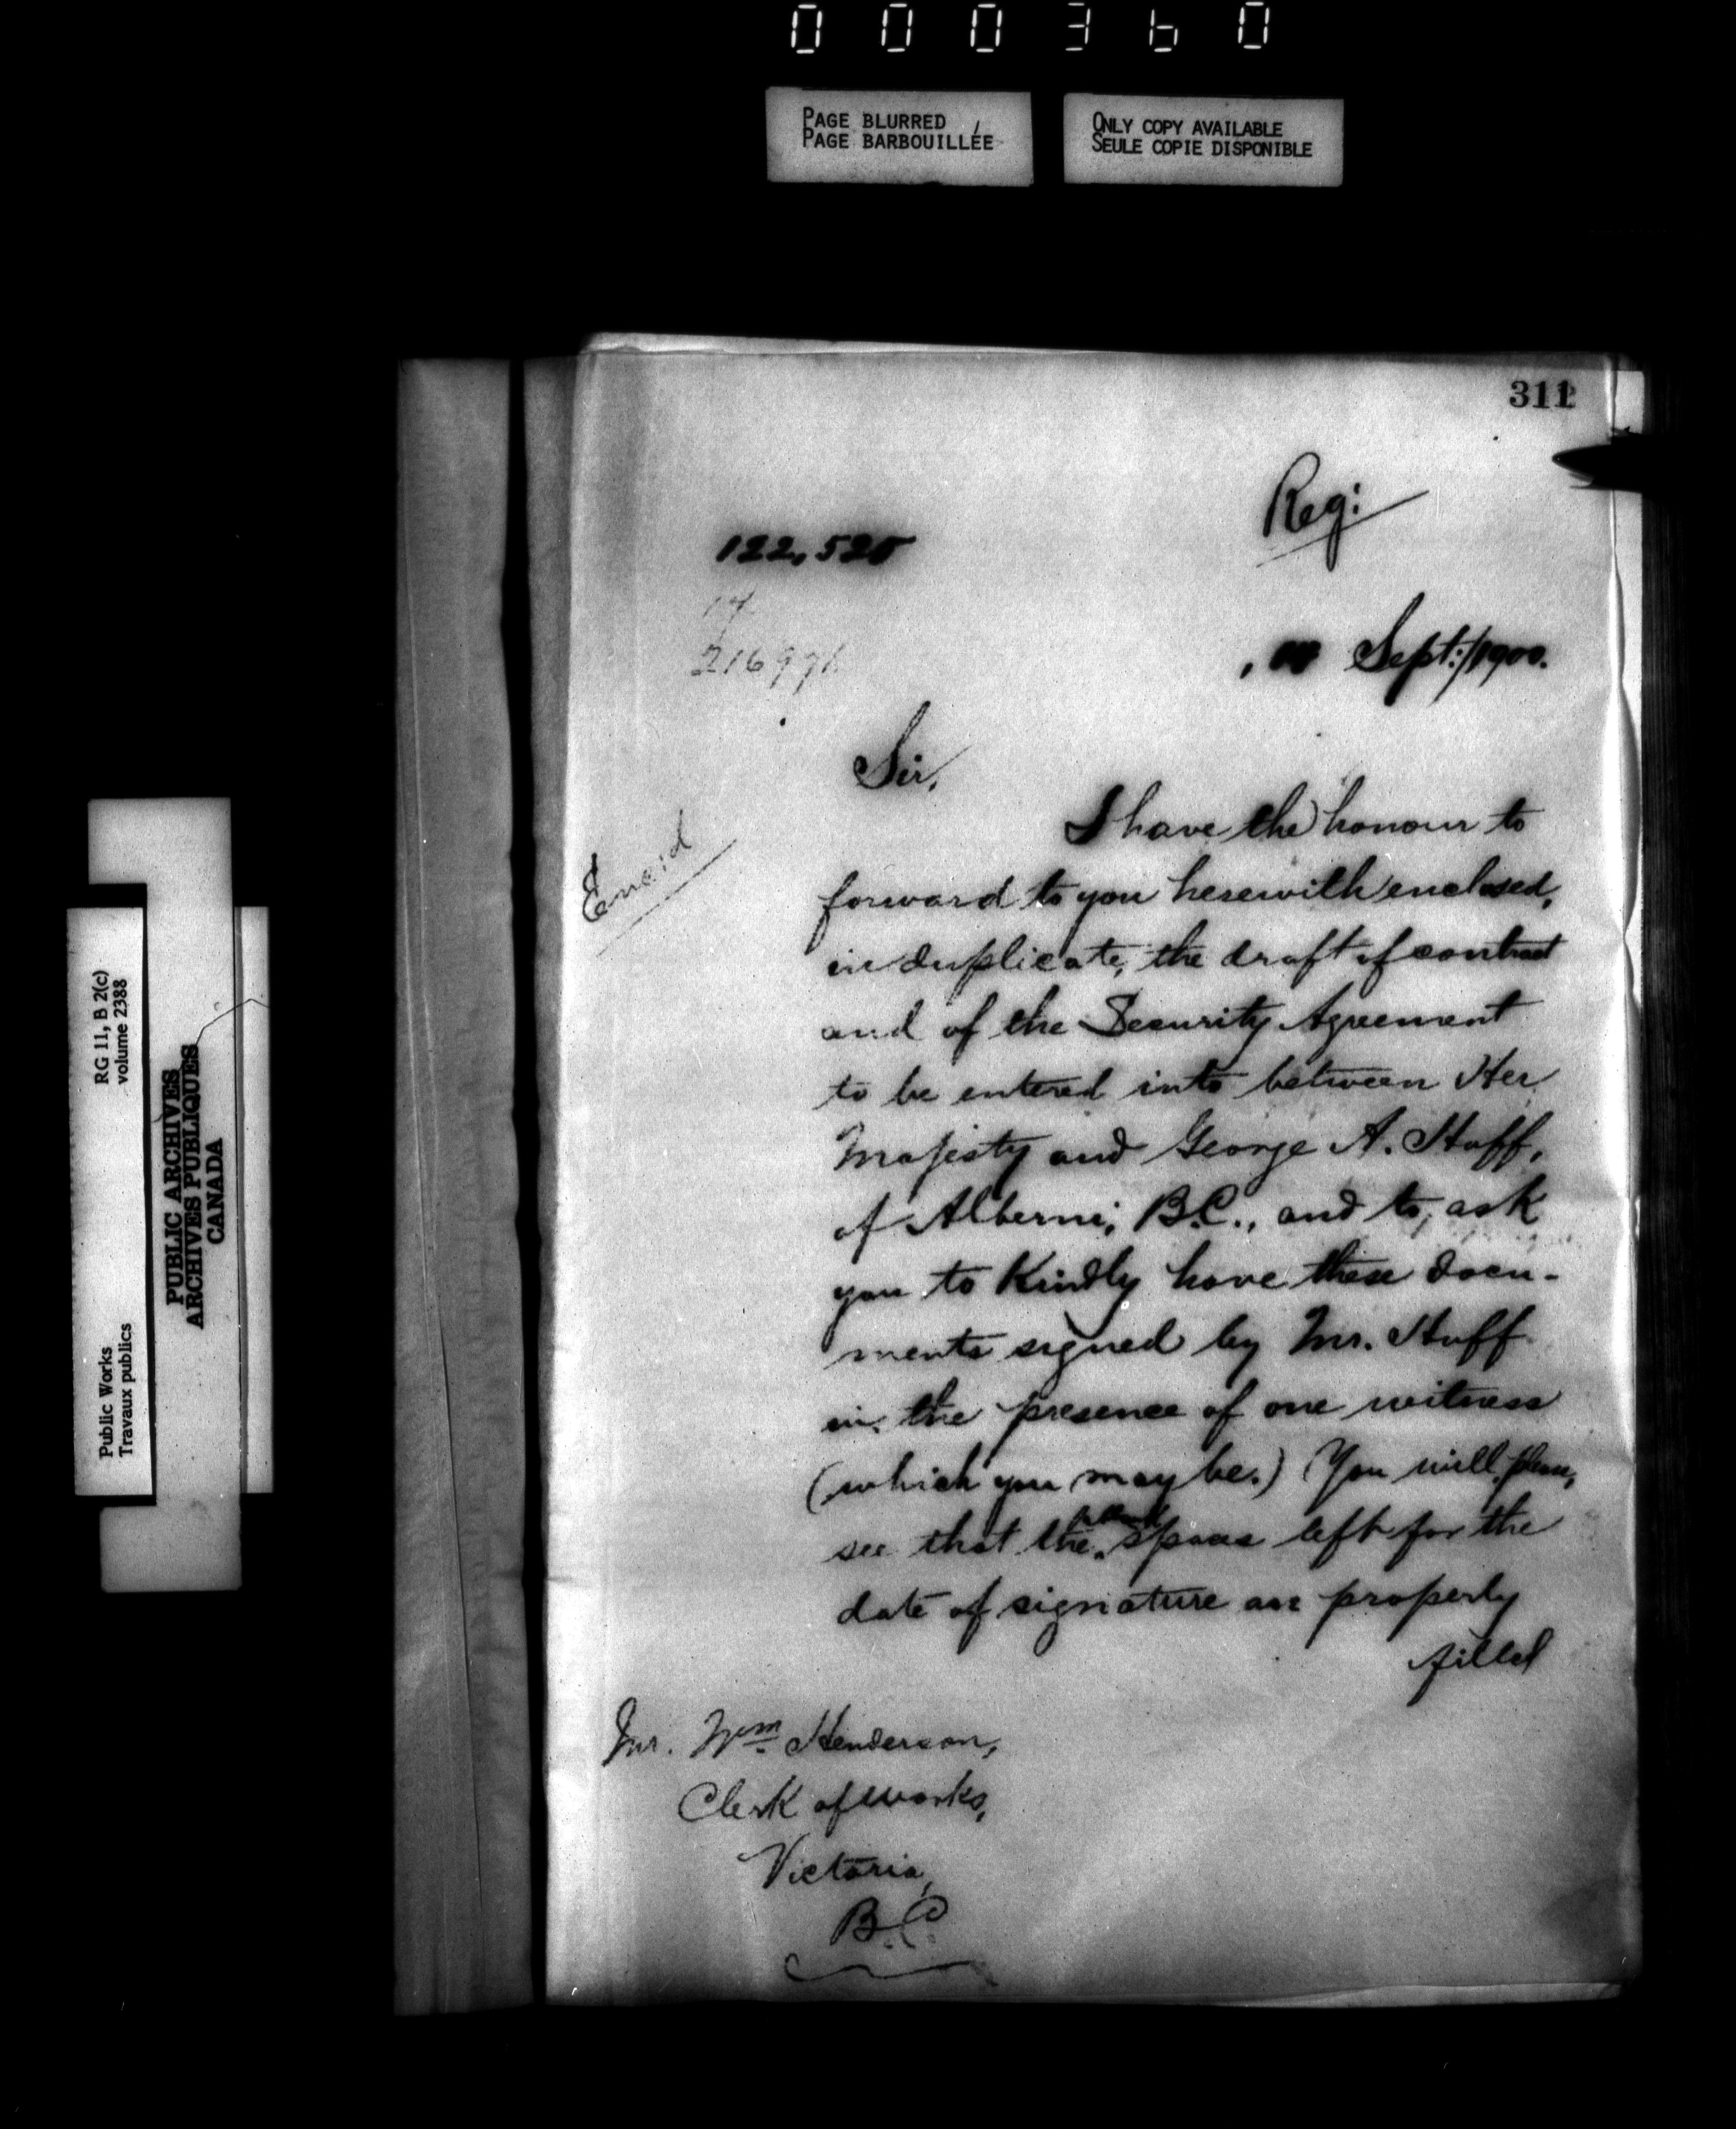 000360
PAGE BLURRED
PAGE BARBOUILLÉE
ONLY COPY AVAILABLE
SEULE COPIE DISPONIBLE
RG 11, B 2(c)
volume 2388
Public Works
Travaux publics
PUBLIC ARCHIVES
ARCHIVES PUBLIQUES
CANADA
311
Reg:
122,525
Sept:/1900.
Sir,
I have the honour to
forward to you herewith enclosed,
in duplicate, the draft of contract
and of the Security Agreement
to be entered into between Her
Majesty and George A. Huff,
of Alberni, B.C., and to ask
you to Kindly have these docu-
ments signed by Mr. Huff
in the presence of one witness
(which you may be.) You will please,
see that the spaces left for the
date of signature are properly
filled
Mr. Wm Henderson,
Clerk of works,
Victoria,
B.C.